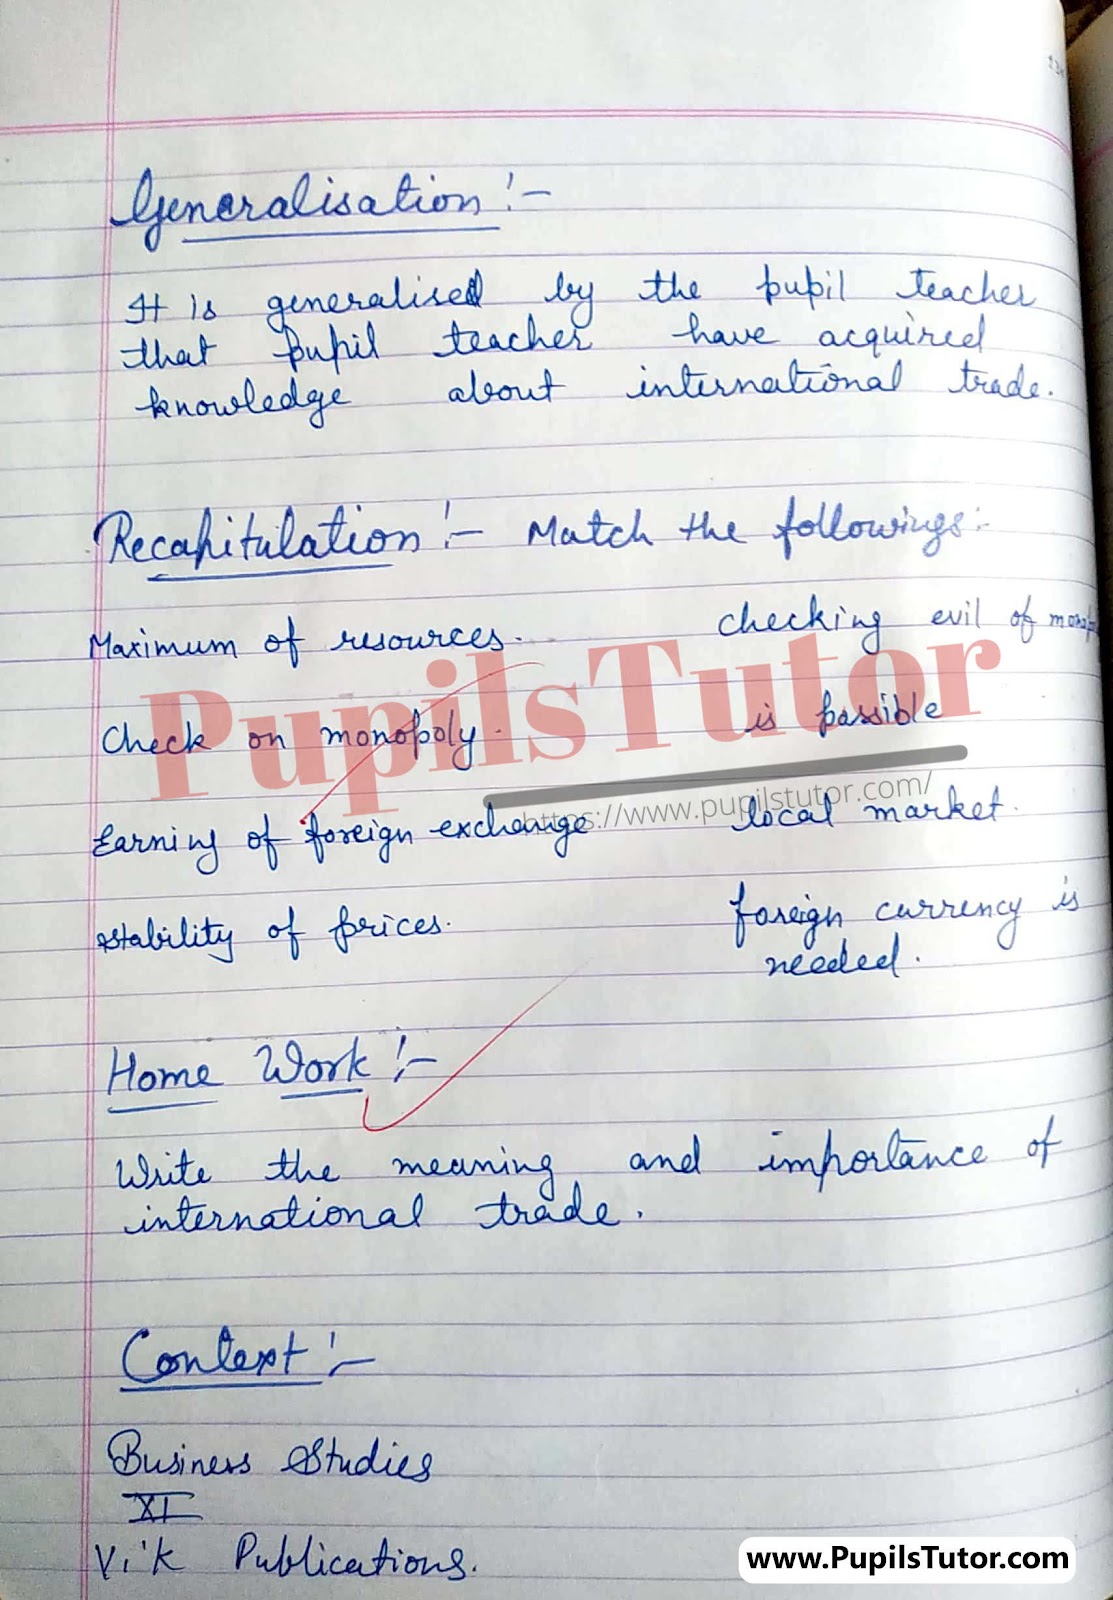 Generalisation :-
It is generalised by the pupil teacher
that pupil teacher have acquired
knowledge about international trade.
Recapitulation :- Match the followings :-
Maximum of resources. checking evil of
Check on monopoly. is possible
PupilsTutor
https://www.pupilstutor.com/
Earning of foreign exchange local market.
stability of prices. foreign currency is
needed.
Home Work :-
Write the meaning and importance of
international trade.
Context :-
Business Studies
XI
V.K Publications.
www.PupilsTutor.com